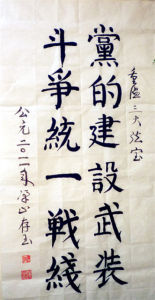 重温三大法宝
黨的建設武裝
斗爭統一戦綫
公元二〇一一年